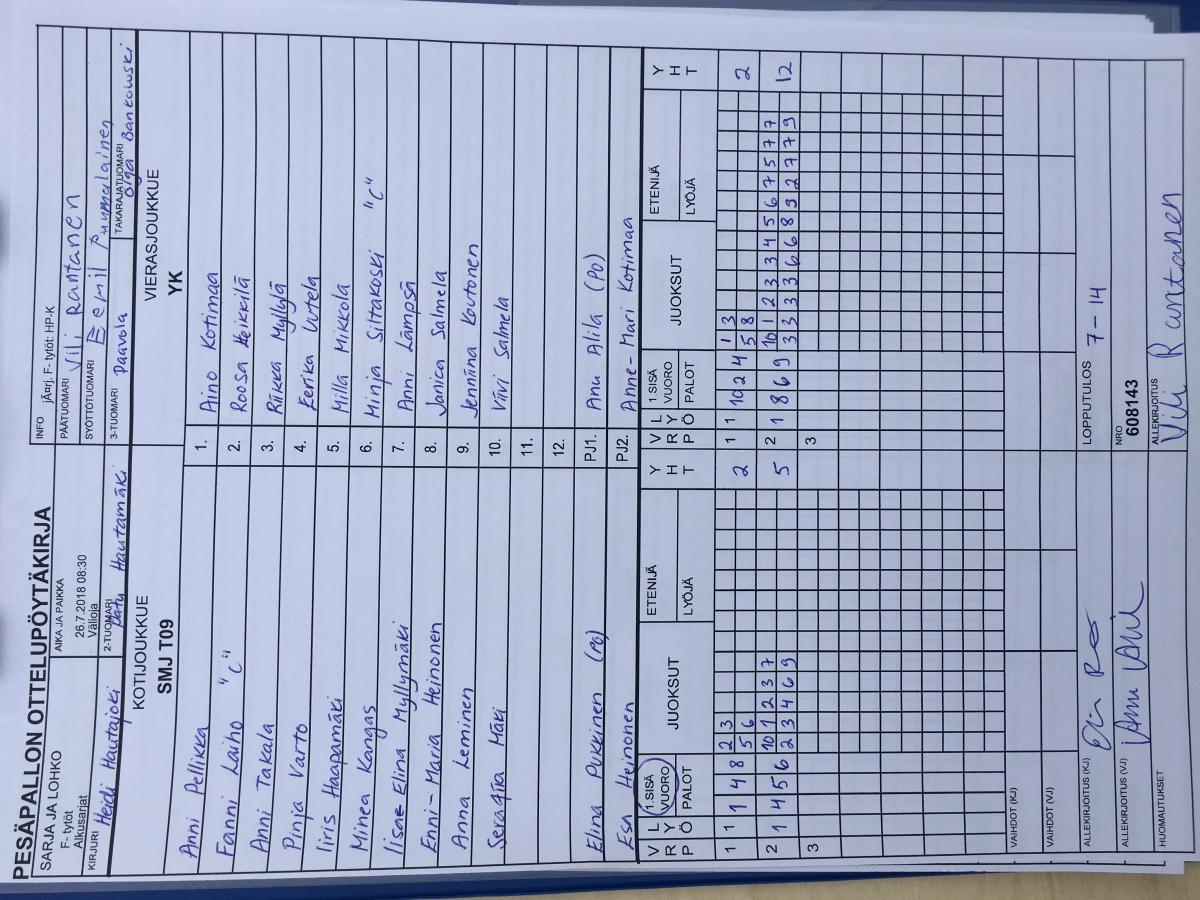 PESÄPALLON OTTELUPÖYTÄKIRJA
SARJA JA LOHKO
F- tytöt
Alkusarjat
AIKA JA PAIKKA
26.7.2018 08:30
Välioja
INFO jÄ¤rj. F- tytöt: HP-K
PÄÄTUOMARI Vili Rantanen
SYÖTTÖTUOMARI Eemil Puumalainen
KIRJURI Heidi Hautajoki
2-TUOMARI Patu Hautamäki
3-TUOMARI Paavola
TAKARAJATUOMARI Olga Bankowski
KOTIJOUKKUE
SMJ T09
VIERASJOUKKUE
YK
Anni Pellikka 1. Aino Kotimaa
Fanni Laiho "C" 2. Roosa Heikkilä
Anni Takala 3. Riikka Myllylä
Pinja Varto 4. Eerika Uutela
Iiris Haapamäki 5. Milla Mikkola
Minea Kangas 6. Minja Siltakoski "C"
Elina Myllymäki 7. Anni Lämpsä
Enni-Maria Heinonen 8. Janica Salmela
Anna Leminen 9. Jennäna Koutonen
Serafia Mäki 10. Viivi Salmela
11.
12.
Elina Pukkinen (PO) PJ1. Anu Alila (PO)
Esa Heinonen PJ2. Anne-Mari Kotimaa
V R P L Y Ö 1.SISÄ VUORO PALOT JUOKSUT ETENIJÄ LYÖJÄ Y H T
V R P L Y Ö 1.SISÄ VUORO PALOT JUOKSUT ETENIJÄ LYÖJÄ Y H T
1 1 1 4 8 2 3 2 1 1 10 2 4 1 3 2
5 6 5 8
2 1 4 5 6 10 1 2 3 7 5 2 1 8 6 9 10 1 2 3 3 4 5 6 7 5 7 7 12
2 3 4 6 9 3 3 3 3 6 6 8 9 2 7 7 9
3 3
VAIHDOT (KJ)
VAIHDOT (VJ)
ALLEKIRJOITUS (KJ)
LOPPUTULOS 7-14
ALLEKIRJOITUS (VJ)
NRO
608143
HUOMAUTUKSET
ALLEKIRJOITUS
Vili Rantanen